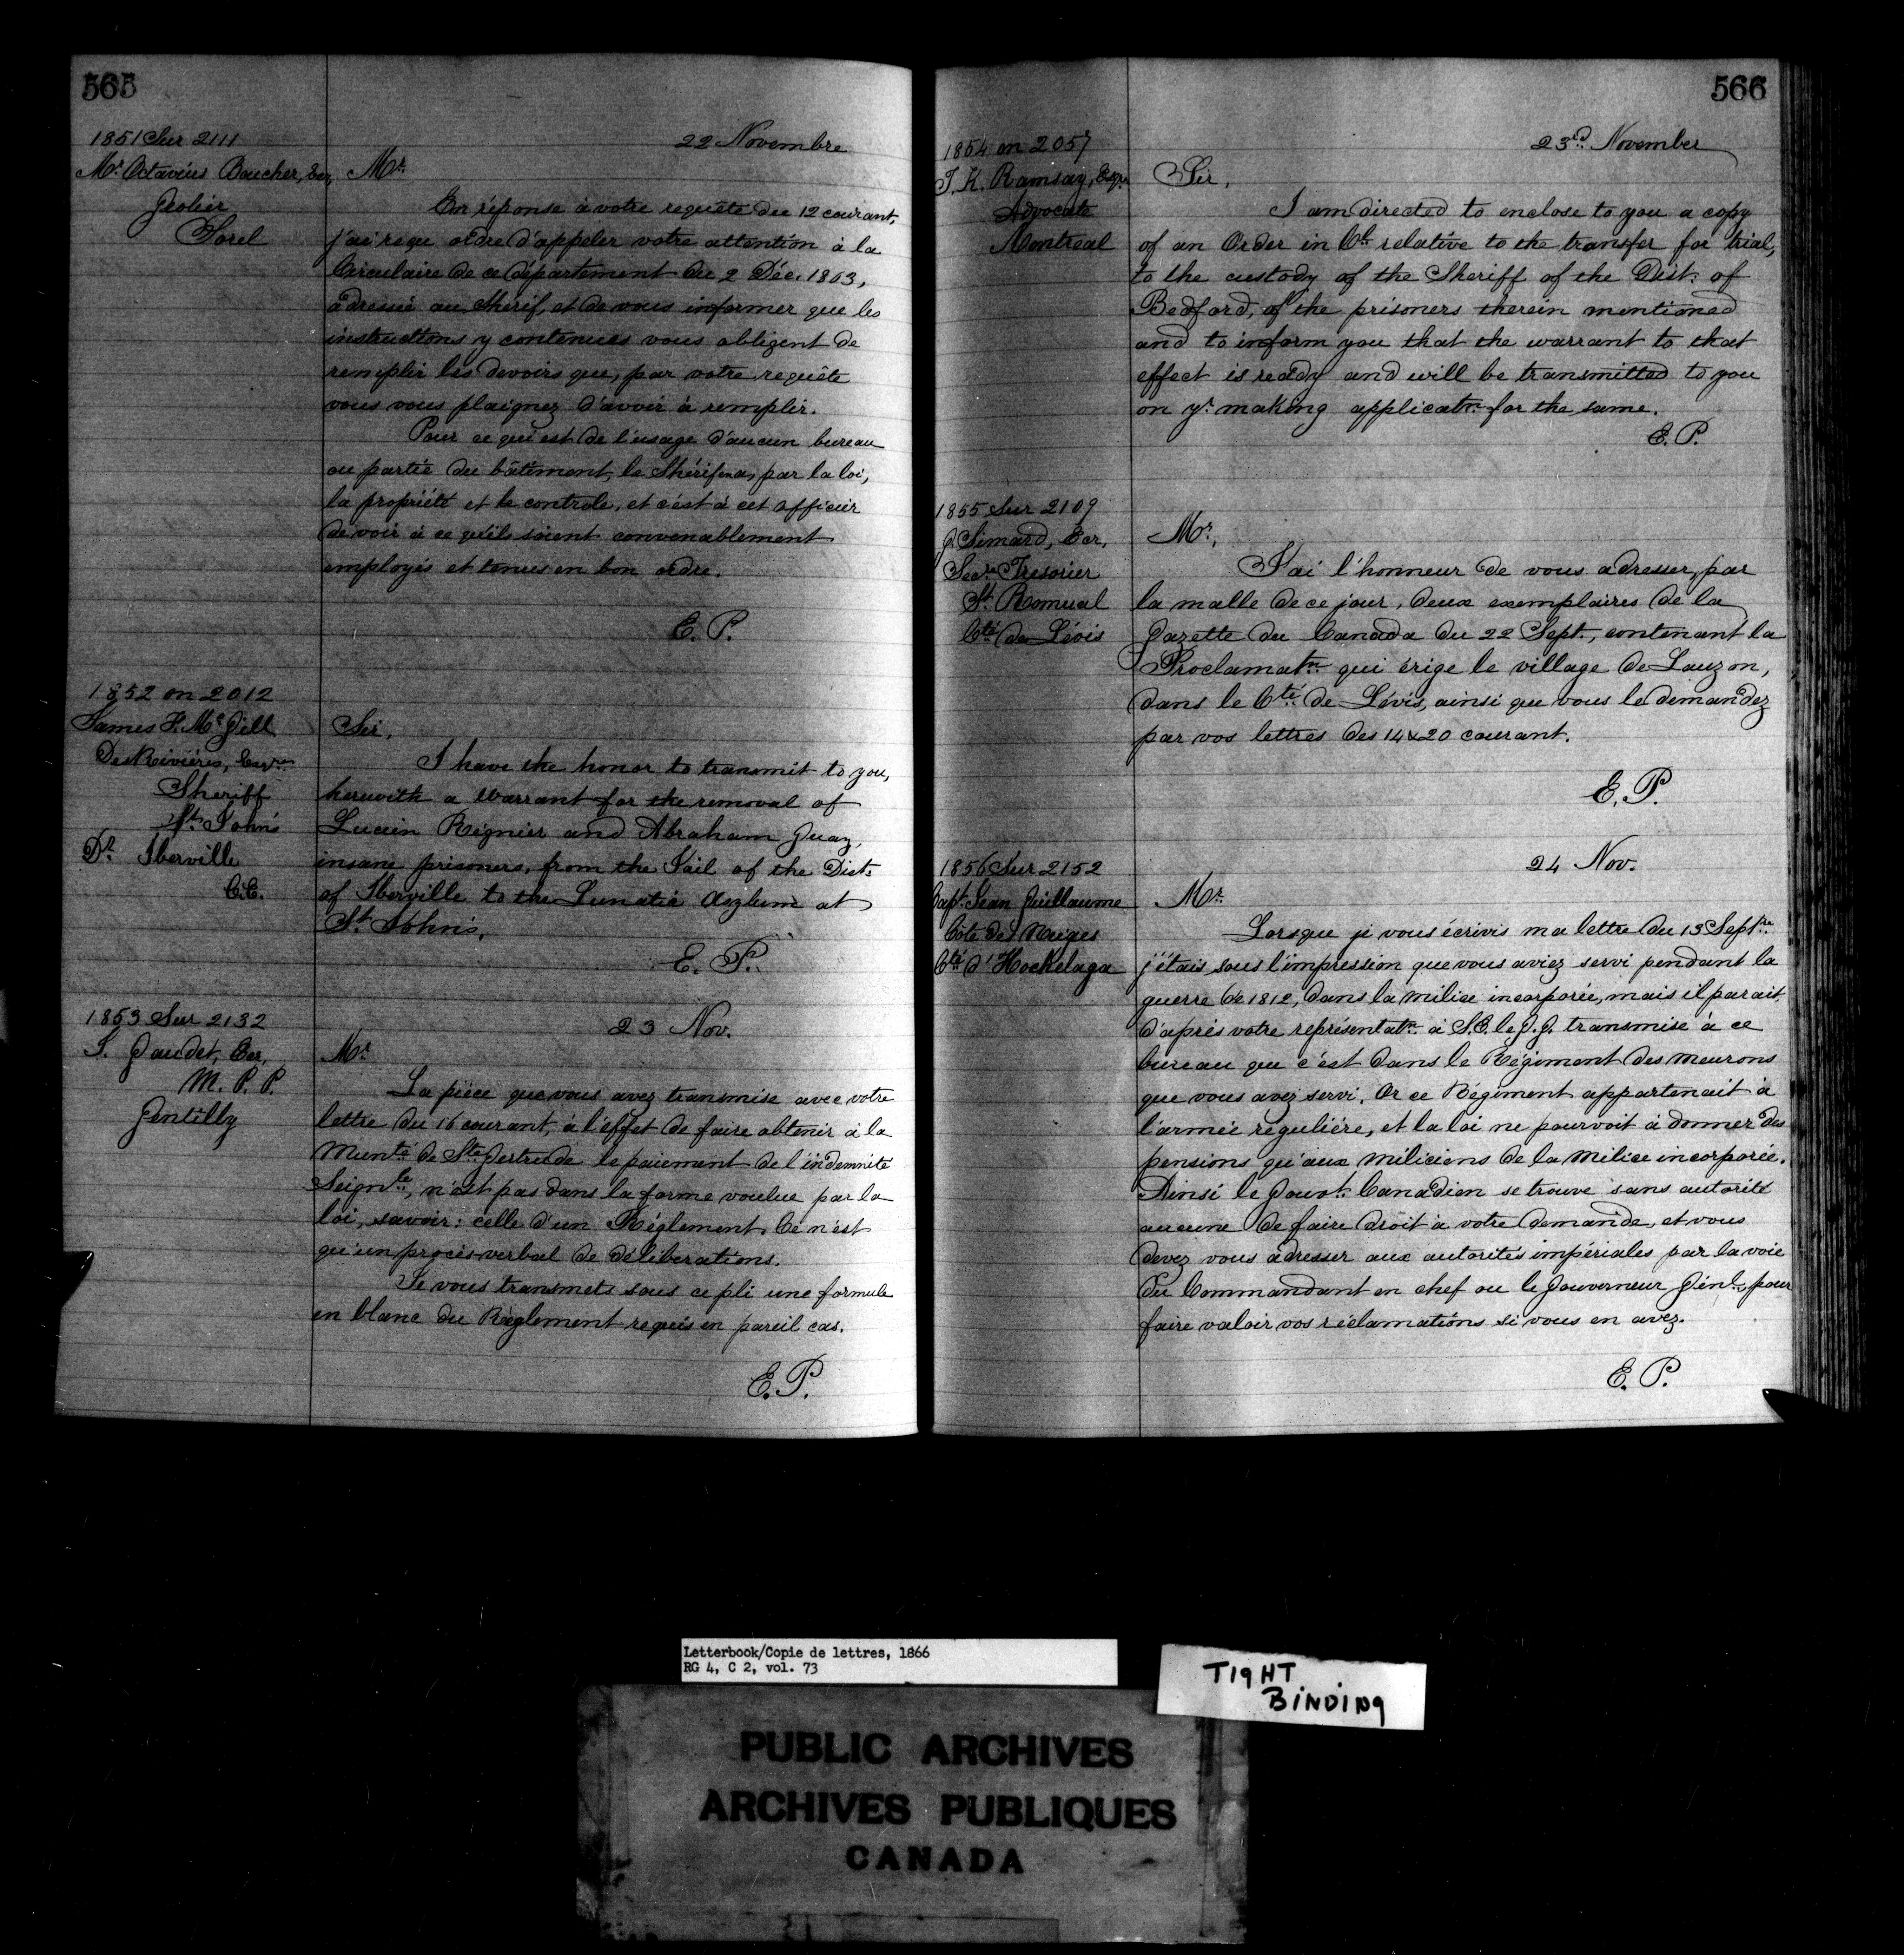 565
1851 Sur 2111
Mr. Octavius Boucher, Ecr,
Geolier
Sorel
22 Novembre
Mr.
En réponse à votre requête du 12 courant,
j'ai reçu ordre d'appeler votre attention à la
Circulaire de ce département du 2 Déc. 1863,
adressée au Shérif, et de vous informer que les
instructions y contenues vous obligent de
remplir les devoirs que, par votre requête
vous vous plaignez d'avoir à remplir.
Pour ce qui est de l'usage d'aucun bureau
ou partie du bâtiment, le Shérif en a, par la loi,
la propriété et le controle, et c'est à cet officier
de voir à ce qu'ils soient convenablement
employés et tenus en bon ordre.
E. P.
1852 on 2012
James F. McGill
DesRivières, Esqre
Sheriff
St. John's
Dt. Iberville
C.E.
Sir,
I have the honor to transmit to you,
herewith a Warrant for the removal of
Lucien Régnier and Abraham Guay,
insane prisoners, from the Jail of the Dist.
of Iberville to the Lunatic Asylum at
St. John's.
E. P.
1853 Sur 2132
J. Gaudet, Ecr,
M. P. P.
Gentilly
23 Nov.
Mr.
La pièce que vous avez transmise avec votre
lettre du 16 courant, à l'effet de faire obtenir à la
Munté de Ste Gertrude le paiement de l'indemnité
Seignle, n'est pas dans la forme voulue par la
loi, savoir: celle d'un Réglement. Ce n'est
qu'un procès verbal de délibérations.
Je vous transmets sous ce pli une formule
en blanc du Règlement requis en pareil cas.
E. P.
566
1854 on 2057
T. K. Ramsay, Esqre
Advocate
Montreal
23rd November
Sir,
I am directed to enclose to you a copy
of an Order in Cl. relative to the transfer for trial,
to the custody of the Sheriff of the Dist. of
Bedford, of the prisoners therein mentioned
and to inform you that the warrant to that
effect is ready and will be transmitted to you
on yr. making applicatn. for the same.
E. P.
1855 Sur 2109
J. Simard, Ecr,
Secre Tresorier
St Romual
Cté de Lévis
Mr,
J'ai l'honneur de vous adresser, par
la malle de ce jour, deux exemplaires de la
Gazette du Canada du 22 Sept., contenant la
Proclamatn qui érige le village de Lauzon,
dans le Cté de Lévis, ainsi que vous le demandez
par vos lettres des 14 & 20 courant.
E. P.
1856 Sur 2152
Capt. Jean Guillaume
Côte des Neiges
Cté d'Hochelaga
24 Nov.
Mr.
Lorsque je vous écrivis ma lettre du 13 Septre
j'étais sous l'impression que vous aviez servi pendant la
guerre de 1812, dans la milice incorporée, mais il parait
d'après votre représentatn. à S.E. le G.G. transmise à ce
bureau que c'est dans le Régiment des Meurons
que vous avez servi. Or ce Régiment appartenait à
l'armée régulière, et la loi ne pourvoit à donner des
pensions qu'aux miliciens de la milice incorporée.
Ainsi le Gouvt. Canadien se trouve sans autorité
aucune de faire droit à votre demande, et vous
devez vous adresser aux autorités impériales par la voie
du Commandant en chef ou le Gouverneur Génl, pour
faire valoir vos réclamations si vous en avez.
E. P.
Letterbook/Copie de lettres, 1866
RG 4, C 2, vol. 73
TIGHT
BINDING
PUBLIC ARCHIVES
ARCHIVES PUBLIQUES
CANADA